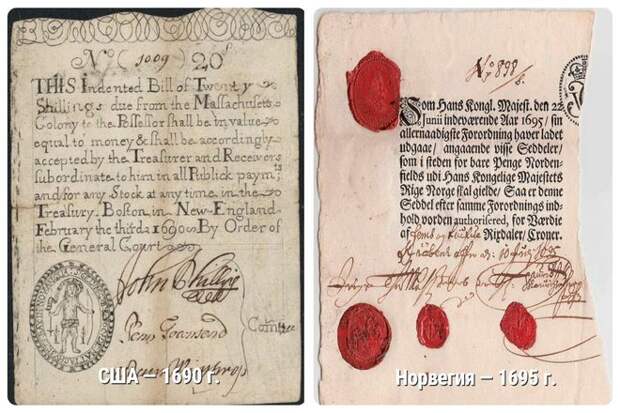 No (1009) 20s
THIS Indented Bill of Twenty
Shillings due from the Massachusets
Colony to the Possessor shall be in value
equal to money & shall be accordingly
accepted by the Treasurer and Receivers
subordinate to him in all Publick paymts
and for any Stock at any time in the
Treasury. Boston in New-England
February the third 1690. By Order of
the General Court
John Phillips
Penn Townsend
Comttee
США – 1690 г.
No 898
Som Hans Kongl. Majest. den 22
Junii indeværende Aar 1695/ sin
allernaadigste Forordning haver ladet
udgaae/ angaaende visse Seddeler/
som i steden for bare Penge Norden-
fields udi Hans Kongelige Majestets
Rige Norge skal gielde/ Saa er denne
Seddel efter samme Forordnings ind-
hold vorden authorisered, for Værdie
af Rixdaler/ Croner.
Норвегия – 1695 г.